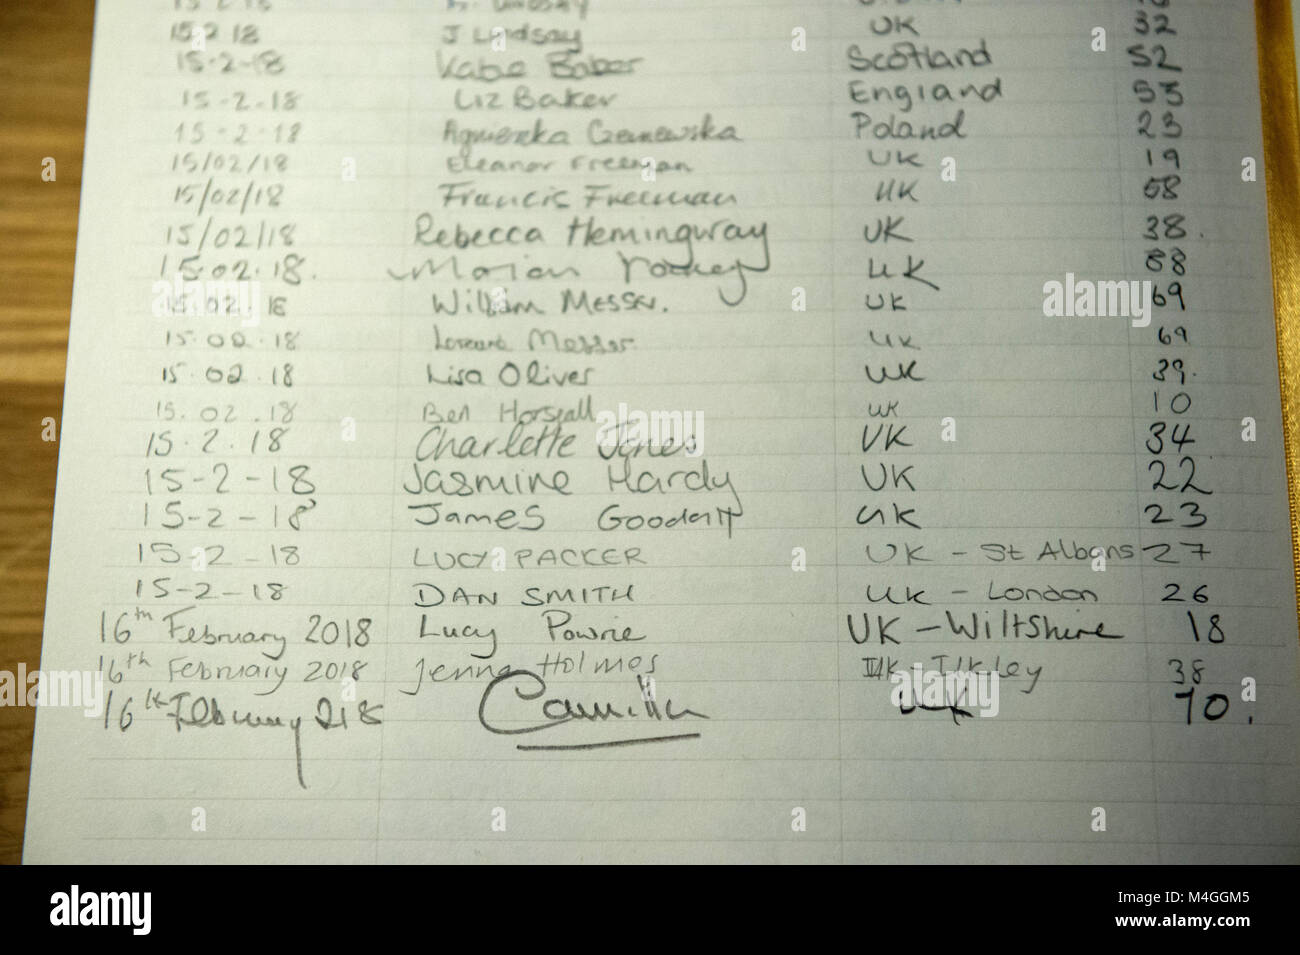 15.2.18 Lindsay
15.2.18 J Lindsay UK 32
15-2-18 Katie Baber Scotland 52
15-2-18 Liz Baker England 53
15-2-18 Agnieszka Poland 23
15/02/18 Eleanor Freeman UK 19
15/02/18 Francis Freeman UK 58
15/02/18 Rebecca Hemingway UK 38.
15.02.18. Marian UK 88
15.02.18 William Messer. UK 69
15.02.18 Messer. UK 69
15.02.18 Lisa Oliver UK 39.
15.02.18 Ben Horsfall UK 10
15.2.18 Charlotte Jones UK 34
15-2-18 Jasmine Hardy UK 22
15-2-18 James UK 23
15-2-18 LUCY PACKER UK - St Albans 27
15-2-18 DAN SMITH UK - London 26
16th February 2018 Lucy Powrie UK - Wiltshire 18
16th February 2018 Jenna Holmes UK - Ilkley 38
16th February 218 Camilla UK 70.
alamy stock photo
alamy
Image ID: M4GGM5
www.alamy.com